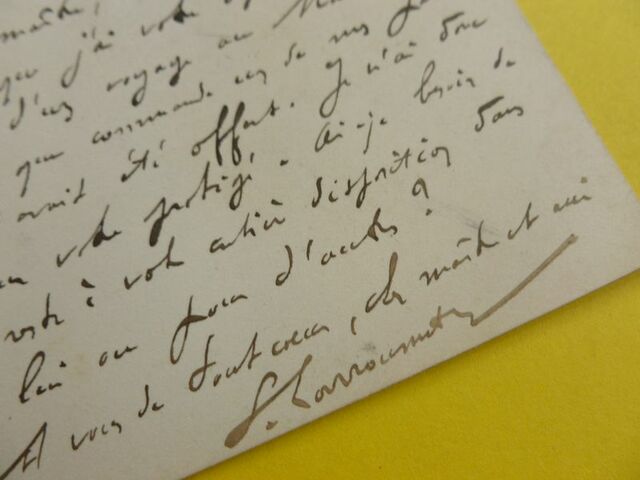 maître,
j'ai votre
d'un voyage au
que commande un de mes
avait été offert. Je n'ai donc
votre protégé. Ai-je besoin de
reste à votre entière disposition dans
lui ou pour d'autres ?
A vous de tout cœur, cher maître et ami
G. Larroumet